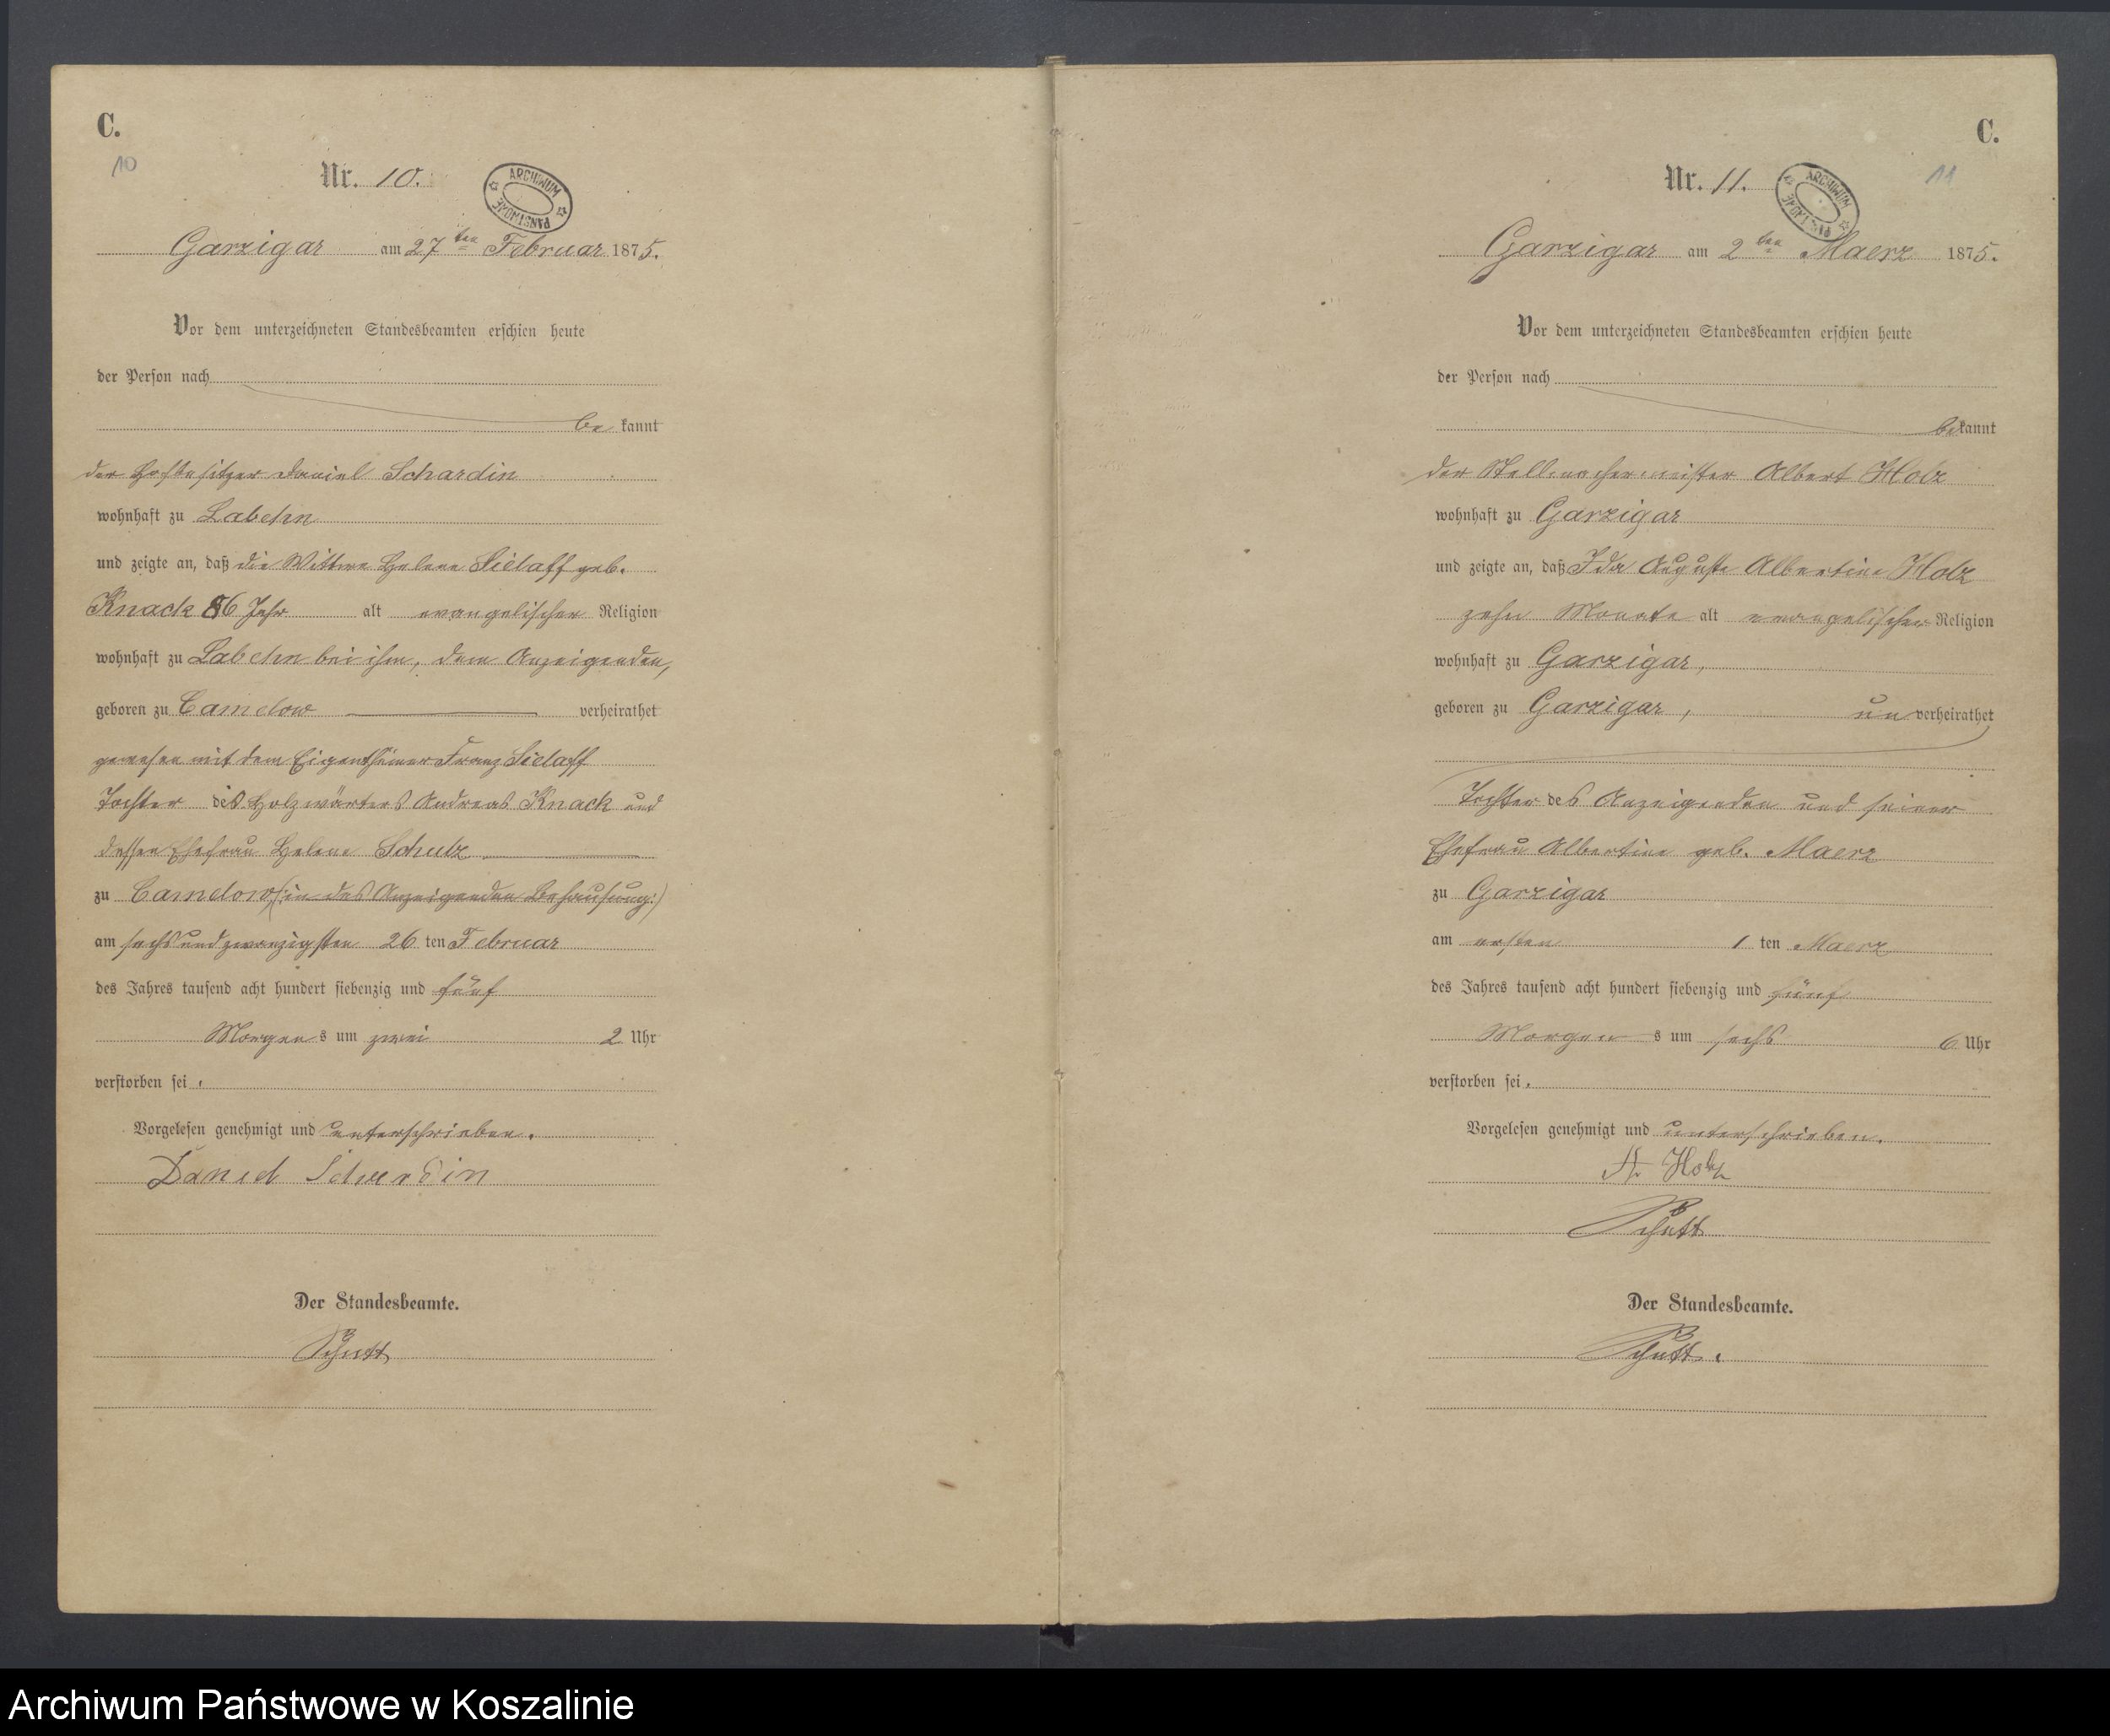 C.
10
Nr. 10.
ARCHIWUM PAŃSTWOWE
Garzigar am 27ten Februar 1875.
Vor dem unterzeichneten Standesbeamten erschien heute
der Person nach
be kannt
der Hofbesitzer Daniel Schardin
wohnhaft zu Labehn
und zeigte an, daß die Wittwe Helene Sielaff geb.
Knack 86 Jahr alt evangelischer Religion
wohnhaft zu Labehn bei ihm, dem Anzeigenden,
geboren zu Camelow verheirathet
gewesen mit dem Eigenthümer Franz Sielaff
Tochter des Holzwärters Andreas Knack und
dessen Ehefrau Helene Schulz
zu Camelow (:in des Anzeigenden Behausung:)
am sechsundzwanzigsten 26 ten Februar
des Jahres tausend acht hundert siebenzig und fünf
Morgen s um zwei 2 Uhr
verstorben sei.
Vorgelesen genehmigt und unterschrieben.
Daniel Schardin
Der Standesbeamte.
C.
11
Nr. 11.
ARCHIWUM PAŃSTWOWE
Garzigar am 2ten Maerz 1875.
Vor dem unterzeichneten Standesbeamten erschien heute
der Person nach
bekannt
der Stellmachermeister Albert Holz
wohnhaft zu Garzigar
und zeigte an, daß Ida Auguste Albertine Holz
zehn Monate alt evangelischer Religion
wohnhaft zu Garzigar,
geboren zu Garzigar, un verheirathet
Tochter des Anzeigenden und seiner
Ehefrau Albertine geb. Maerz
zu Garzigar
am ersten 1 ten Maerz
des Jahres tausend acht hundert siebenzig und fünf
Morgen s um sechs 6 Uhr
verstorben sei.
Vorgelesen genehmigt und unterschrieben.
A. Holz
Der Standesbeamte.
Archiwum Państwowe w Koszalinie